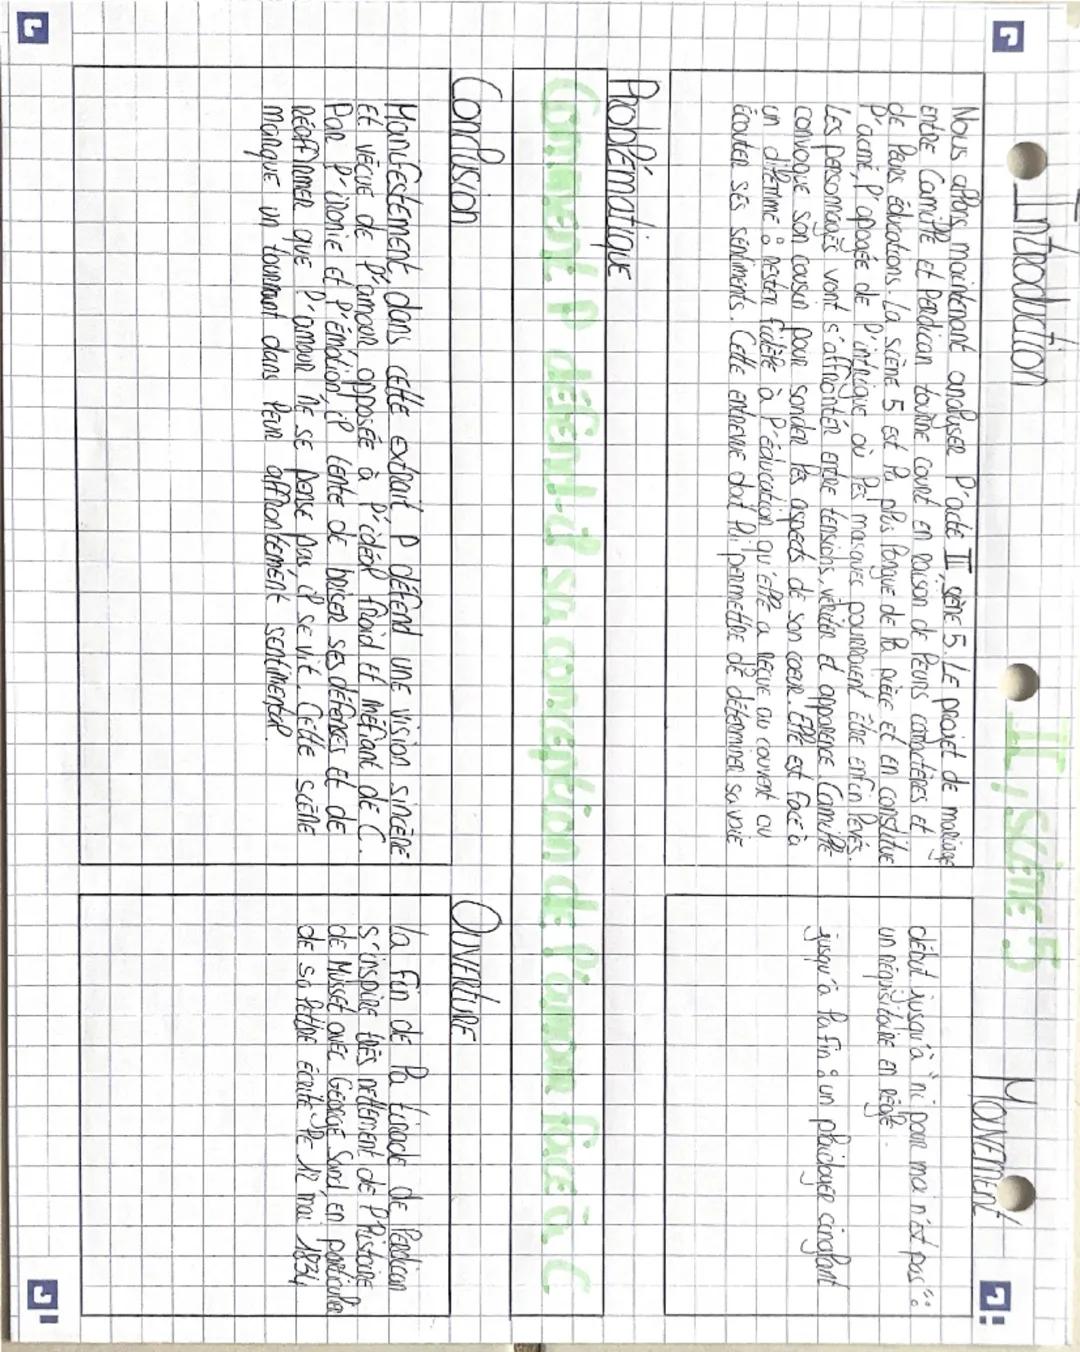 Introduction
II, scène 5
Mouvement
Nous allons maintenant analyser l'acte II, scène 5. Le projet de mariage
entre Camille et Perdican tourne court en raison de leurs caractères et
de leurs éducations. La scène 5 est la plus longue de la pièce et en constitue
l'acmé, l'apogée de l'intrigue où les masques pourraient être enfin levés.
Les personnages vont s'affronter entre tensions, vérités et apparence. Camille
convoque son cousin pour sonder les aspects de son coeur. Elle est face à
un dilemme : rester fidèle à l'éducation qu'elle a reçue au couvent ou
écouter ses sentiments. Cette entrevue doit lui permettre de déterminer sa voie
début jusqu'à "ni pour moi n'est pas" :
un réquisitoire en règle.
jusqu'à la fin : un plaidoyer cinglant
Problématique
Comment P défend-il sa conception de l'amour face à C
Conclusion
Manifestement, dans cette extrait P défend une vision sincère
et vécue de l'amour, opposée à l'idéal froid et méfiant de C.
Par l'ironie et l'émotion, il tente de briser ses défenses et de
réaffirmer que l'amour ne se pense pas, il se vit. Cette scène
marque un tournant dans leur affrontement sentimental.
Ouverture
la fin de la tirade de Perdican
s'inspire très nettement de l'histoire
de Musset avec George Sand, en particulier
de sa lettre écrite le 12 mai 1834